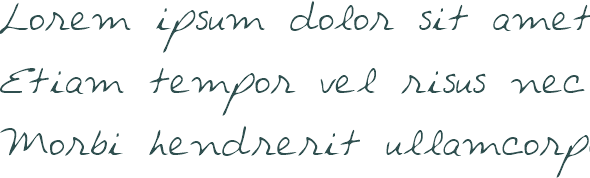 Lorem ipsum dolor sit amet
Etiam tempor vel risus nec
Morbi hendrerit ullamcorp